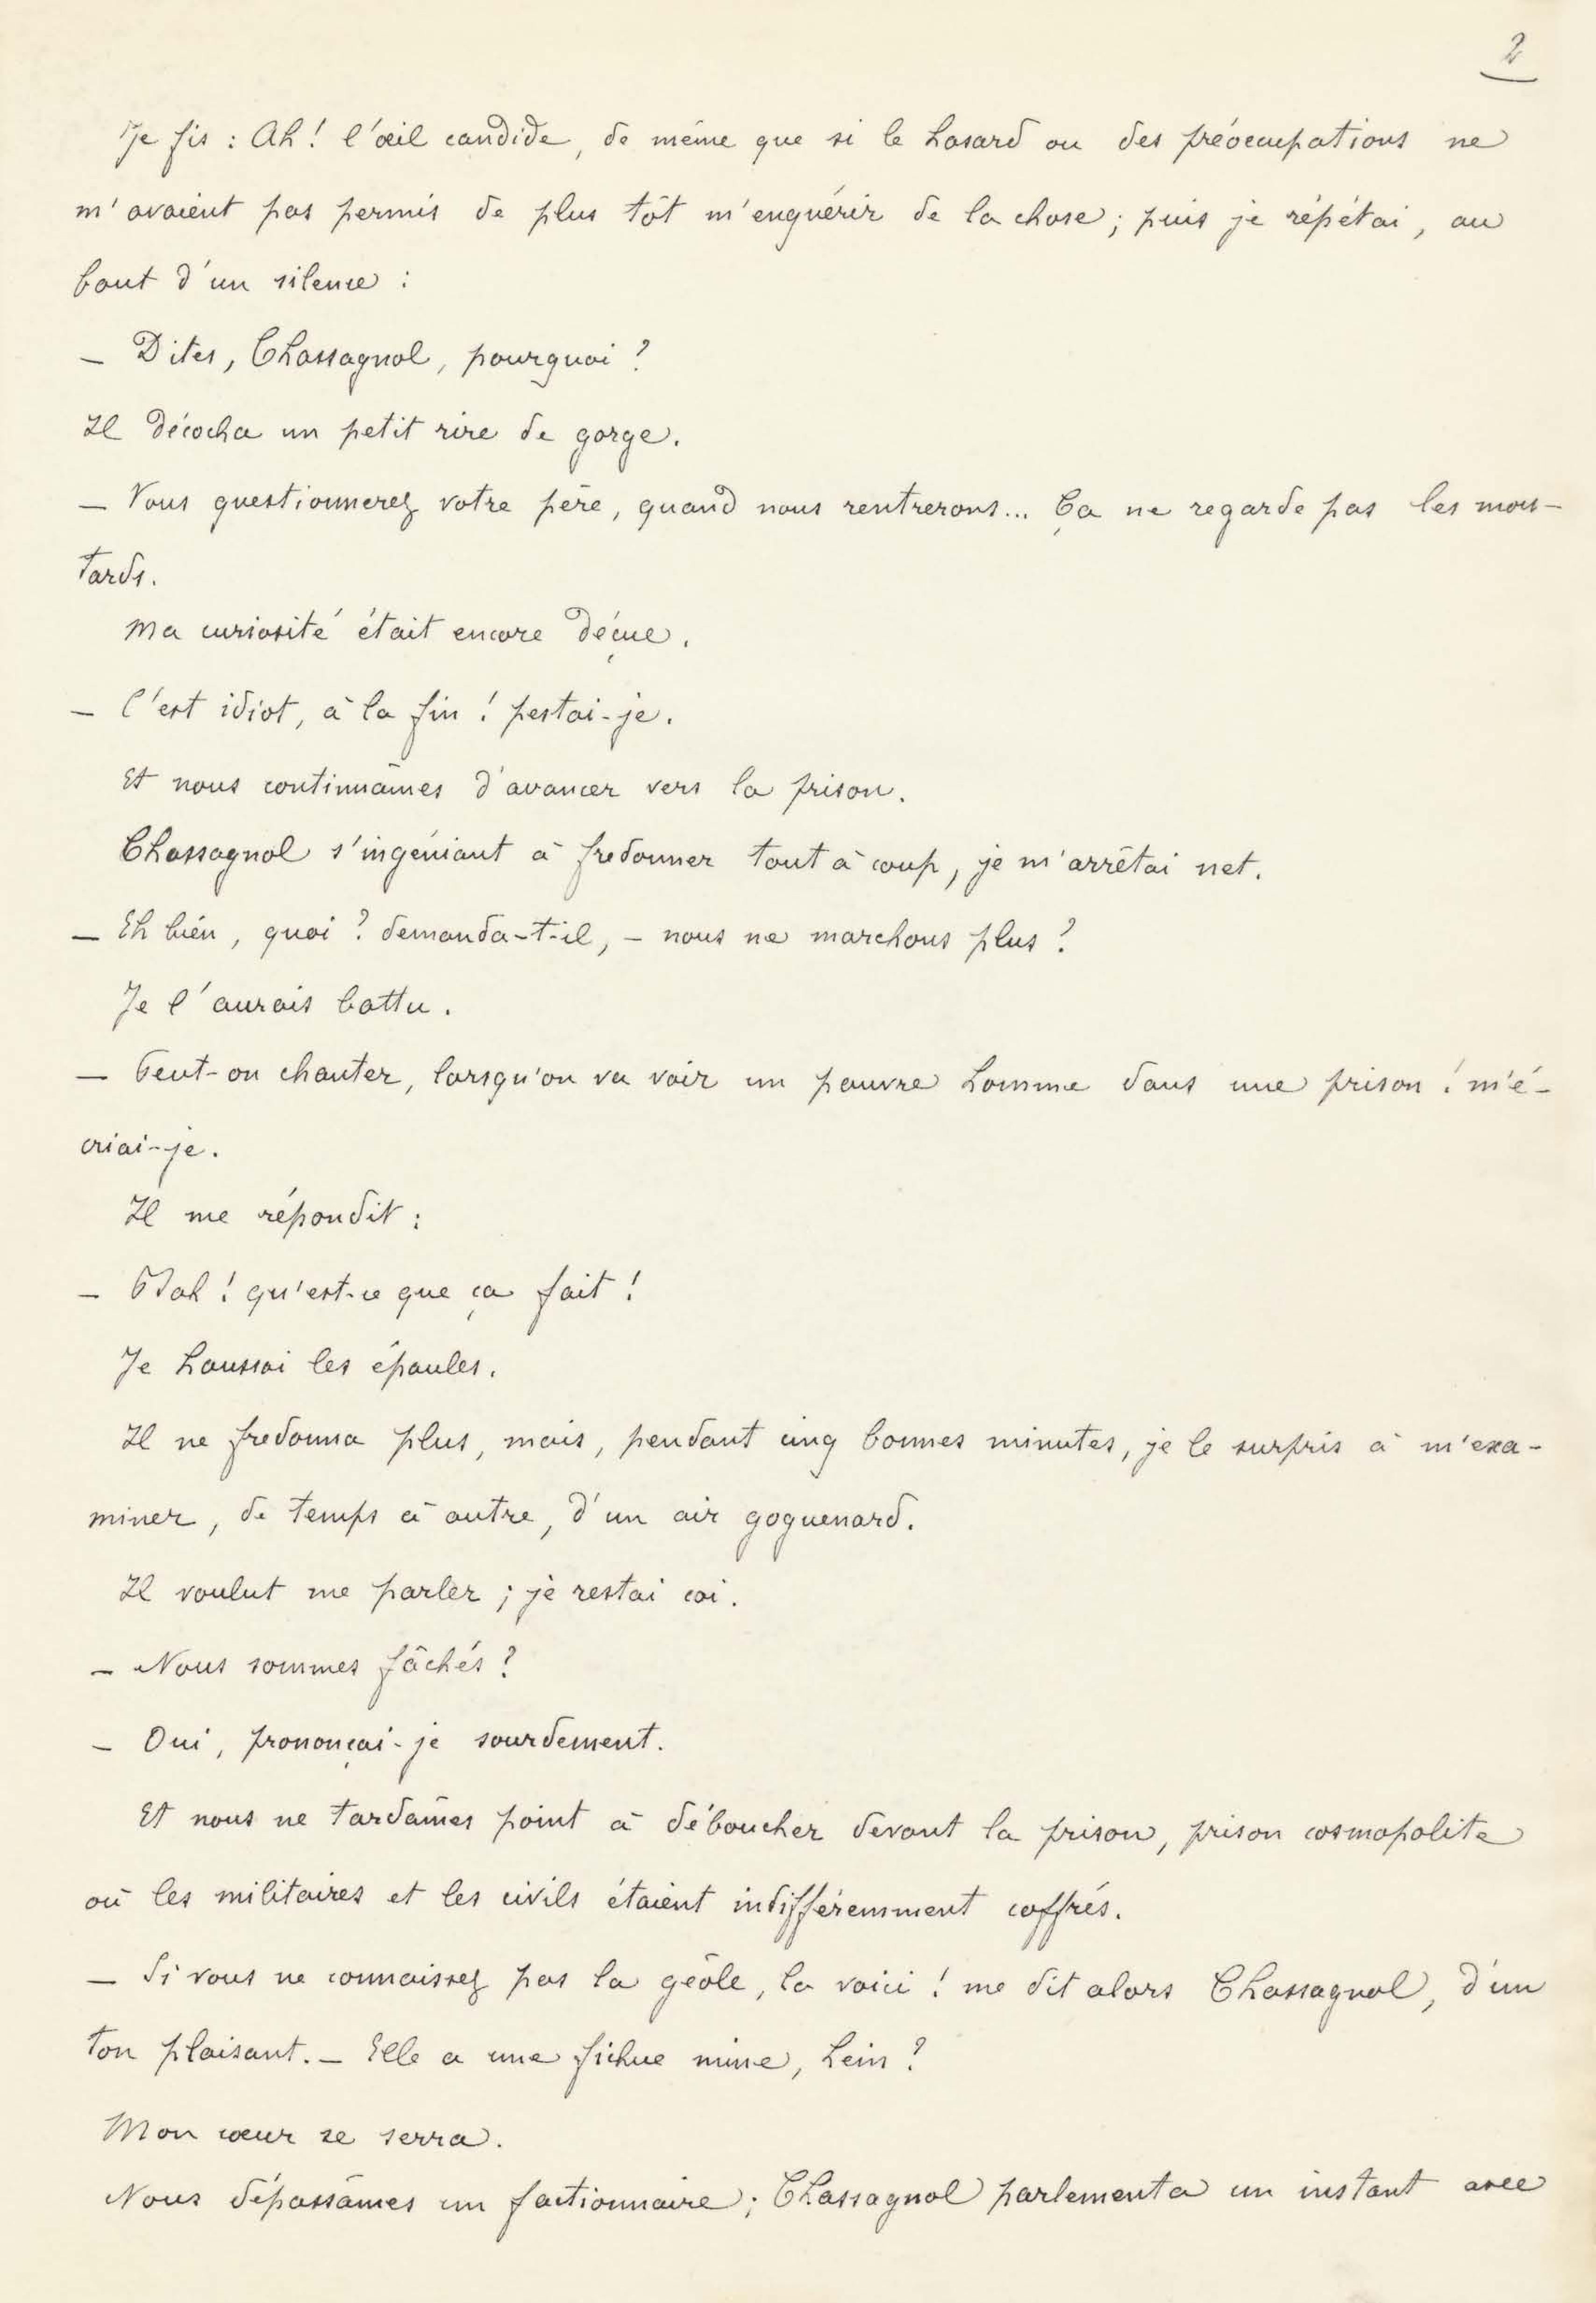 2
Je fis : Ah ! l'œil candide, de même que si le hasard ou des préoccupations ne
m'avaient pas permis de plus tôt m'enquérir de la chose ; puis je répétai, au
bout d'un silence :
— Dites, Chassagnol, pourquoi ?
Il décocha un petit rire de gorge.
— Vous questionnerez votre père, quand nous rentrerons... Ça ne regarde pas les mou-
tards.
Ma curiosité était encore déçue.
— C'est idiot, à la fin ! pestai-je.
Et nous continuâmes d'avancer vers la prison.
Chassagnol s'ingéniant à fredonner tout à coup, je m'arrêtai net.
— Eh bien, quoi ? demanda-t-il, — nous ne marchons plus ?
Je l'aurais battu.
— Peut-on chanter, lorsqu'on va voir un pauvre homme dans une prison ! m'é-
criai-je.
Il me répondit :
— Bah ! qu'est-ce que ça fait !
Je haussai les épaules.
Il ne fredonna plus, mais, pendant cinq bonnes minutes, je le surpris à m'exa-
miner, de temps à autre, d'un air goguenard.
Il voulut me parler ; je restai coi.
— Nous sommes fâchés ?
— Oui, prononçai-je sourdement.
Et nous ne tardâmes point à déboucher devant la prison, prison cosmopolite
où les militaires et les civils étaient indifféremment coffrés.
— Si vous ne connaissez pas la geôle, la voici ! me dit alors Chassagnol, d'un
ton plaisant. — Elle a une fichue mine, hein ?
Mon cœur se serra.
Nous dépassâmes un factionnaire ; Chassagnol parlementa un instant avec